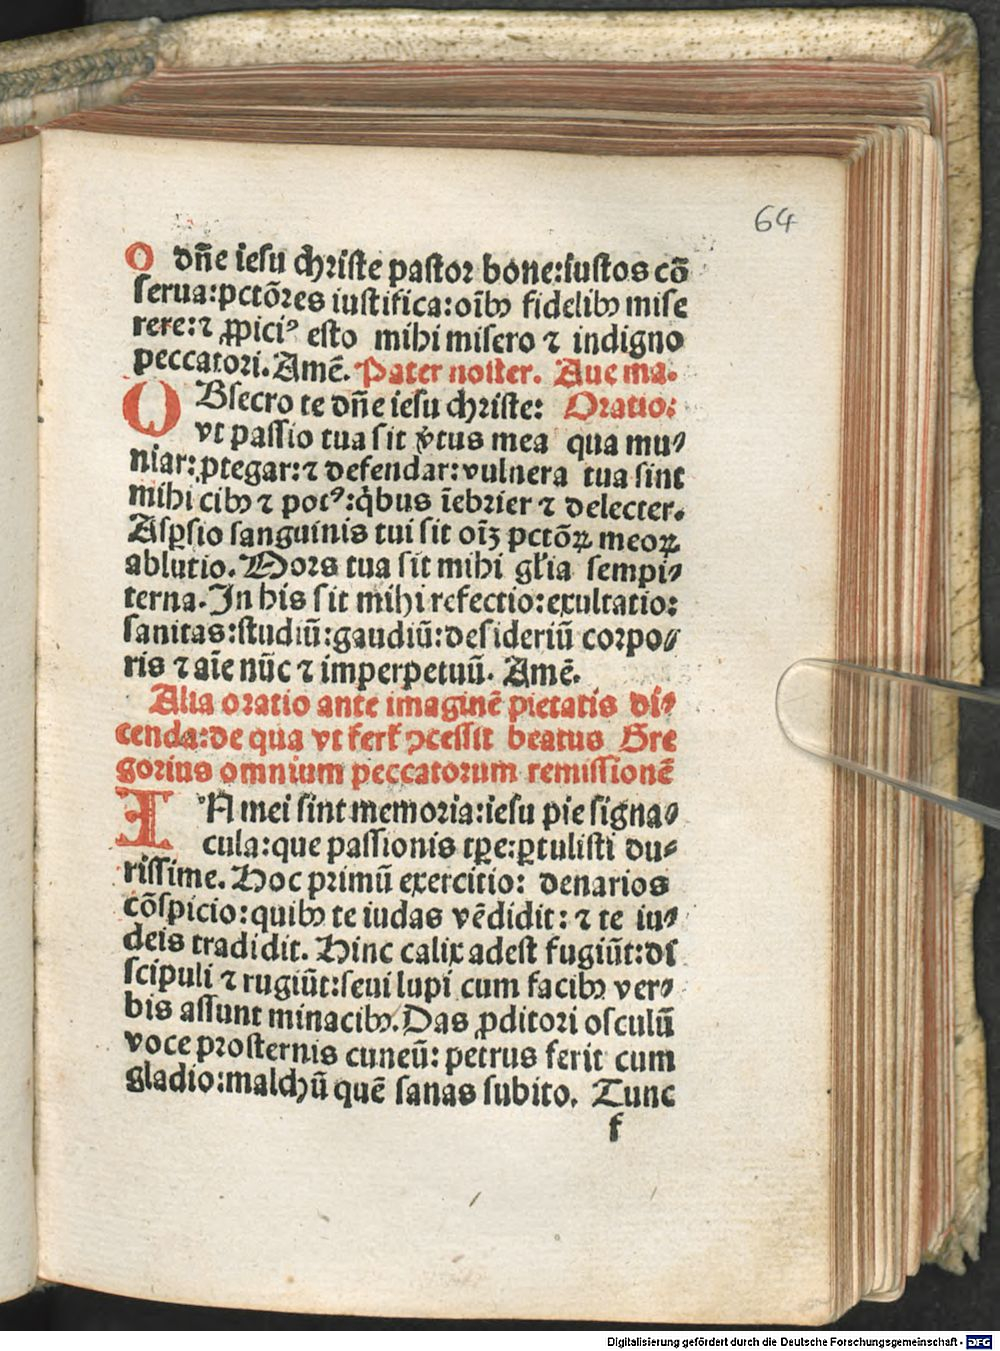 64
O dn̄e iesu chꝛiste pastoꝛ bone:iustos cō
serua:pctōꝛes iustifica:oīb⁹ fidelib⁹ mise
rere:⁊ ꝓpici⁹ esto mihi misero ⁊ indigno
peccatoꝛi. Amē. Pater noster. Aue ma.
OBsecro te dn̄e iesu chꝛiste: Oꝛatio:
vt passio tua sit v̓tus mea qua mu⸗
niar:ꝓtegar:⁊ defendar:vulnera tua sint
mihi cib⁹ ⁊ pot⁹:q̇bus īebꝛier ⁊ delecter.
Asꝑsio sanguinis tui sit oīꝫ pctōꝝ meoꝝ
ablutio. Moꝛs tua sit mihi gľia sempi⸗
terna. In his sit mihi refectio:exultatio:
sanitas:studiū:gaudiū:desideriū coꝛpo⸗
ris ⁊ aīe nūc ⁊ imperpetuū. Amē.
Alia oꝛatio ante imaginē pietatis di⸗
cenda:de qua vt ferť ↄcessit beatus Gre
goꝛius omnium peccatoꝛum remissionē
IN mei sint memoꝛia:iesu pie signa⸗
cula:que passionis tꝑe:ꝑtulisti du⸗
rissime. Hoc pꝛimū exercitio: denarios
cōspicio:quib⁹ te iudas vēdidit: ⁊ te iu⸗
deis tradidit. Hinc calix adest fugiūt:di
scipuli ⁊ rugiūt:seui lupi cum facib⁹ ver⸗
bis assunt minacib⁹. Das ꝓditoꝛi osculū
voce pꝛosternis cuneū: petrus ferit cum
gladio:malchū quē sanas subito. Tunc
f
Digitalisierung gefördert durch die Deutsche Forschungsgemeinschaft - DFG